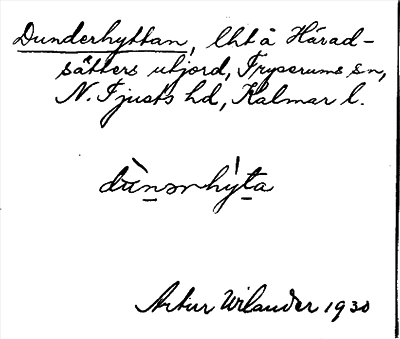 Dunderhyttan, lht å Härad-
sätters utjord, Tryserums sn,
N. Tjusts hd, Kalmar l.
dùnərhýta
Artur Wilander 1930